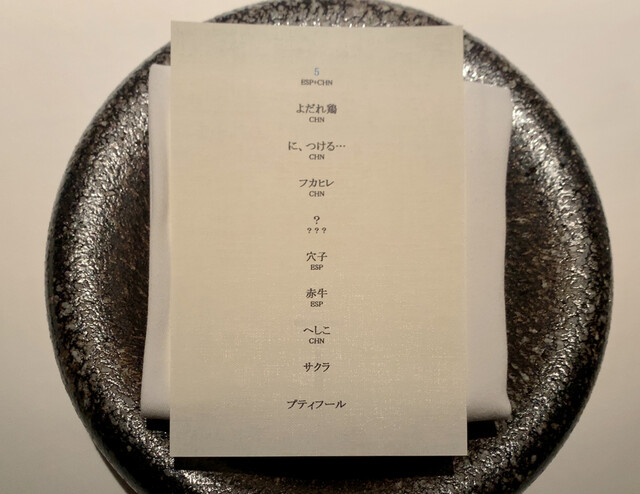 5
ESP+CHN
よだれ鶏
CHN
に、つける…
CHN
フカヒレ
CHN
？
？？？
穴子
ESP
赤牛
ESP
へしこ
CHN
サクラ
プティフール